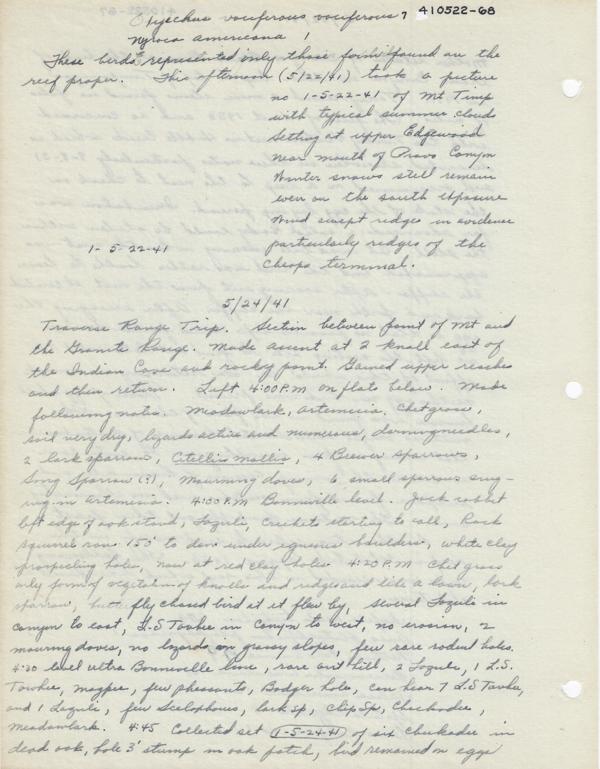 Oxyechus vociferous vociferous 7 410522-68
Nyroca americana 1
These birds represented only those forms found on the
reef proper. This afternoon (5/22/41) took a picture
no 1-5-22-41 of Mt Timp
with typical summer clouds
Setting at upper Edgewood
near mouth of Provo Canyon
Winter snows still remain
even on the south exposure
Wind swept ridges in evidence
1-5-22-41 particularly ridges of the
Cheops terminal.
5/24/41
Traverse Range Trip. Section between point of Mt and
the Granite Range. Made ascent at 2 knoll east of
the Indian Cave and rocky point. Gained upper reaches
and then return. Left 4:00 P.M on flats below. Made
following notes. Meadowlark, artemisia, Chetgrass,
soil very dry, lizards active and numerous, darningneedles,
2 lark sparrow, Citellis mollis, 4 Brewer sparrows,
Song Sparrow (?), Mourning doves, 6 small sparrows
in Artemisia. 4:00 P.M Bonneville level. Jack rabbit
left edge of oak stand, Lazuli, Crickets starting to call, Rock
squirrel ran 150' to den under igneous boulders, white clay
prospecting holes, now at red clay holes 4:20 P.M Chet grass
only form of vegetation of knolls and ridges and like a lawn, lark
sparrow, butterfly chased bird as it flew by, several Lazuli in
canyon to east, G.S Towhee in Canyon to west, no erosion, 2
mourning doves, no lizards on grassy slopes, few rare rodent holes.
4:30 level ultra Bonneville line, rare ant hill, 2 Lazuli, 1 G.S.
Towhee, magpie, few pheasants, Badger hole, can hear 7 G.S Towhee,
and 1 Lazuli, few Scelophorus, lark sp, Chip Sp, Chickadee,
Meadowlark. 4:45 Collected set 1-5-24-41 of six Chickadee in
dead oak, hole 3' stump in oak patch, bird remained on eggs